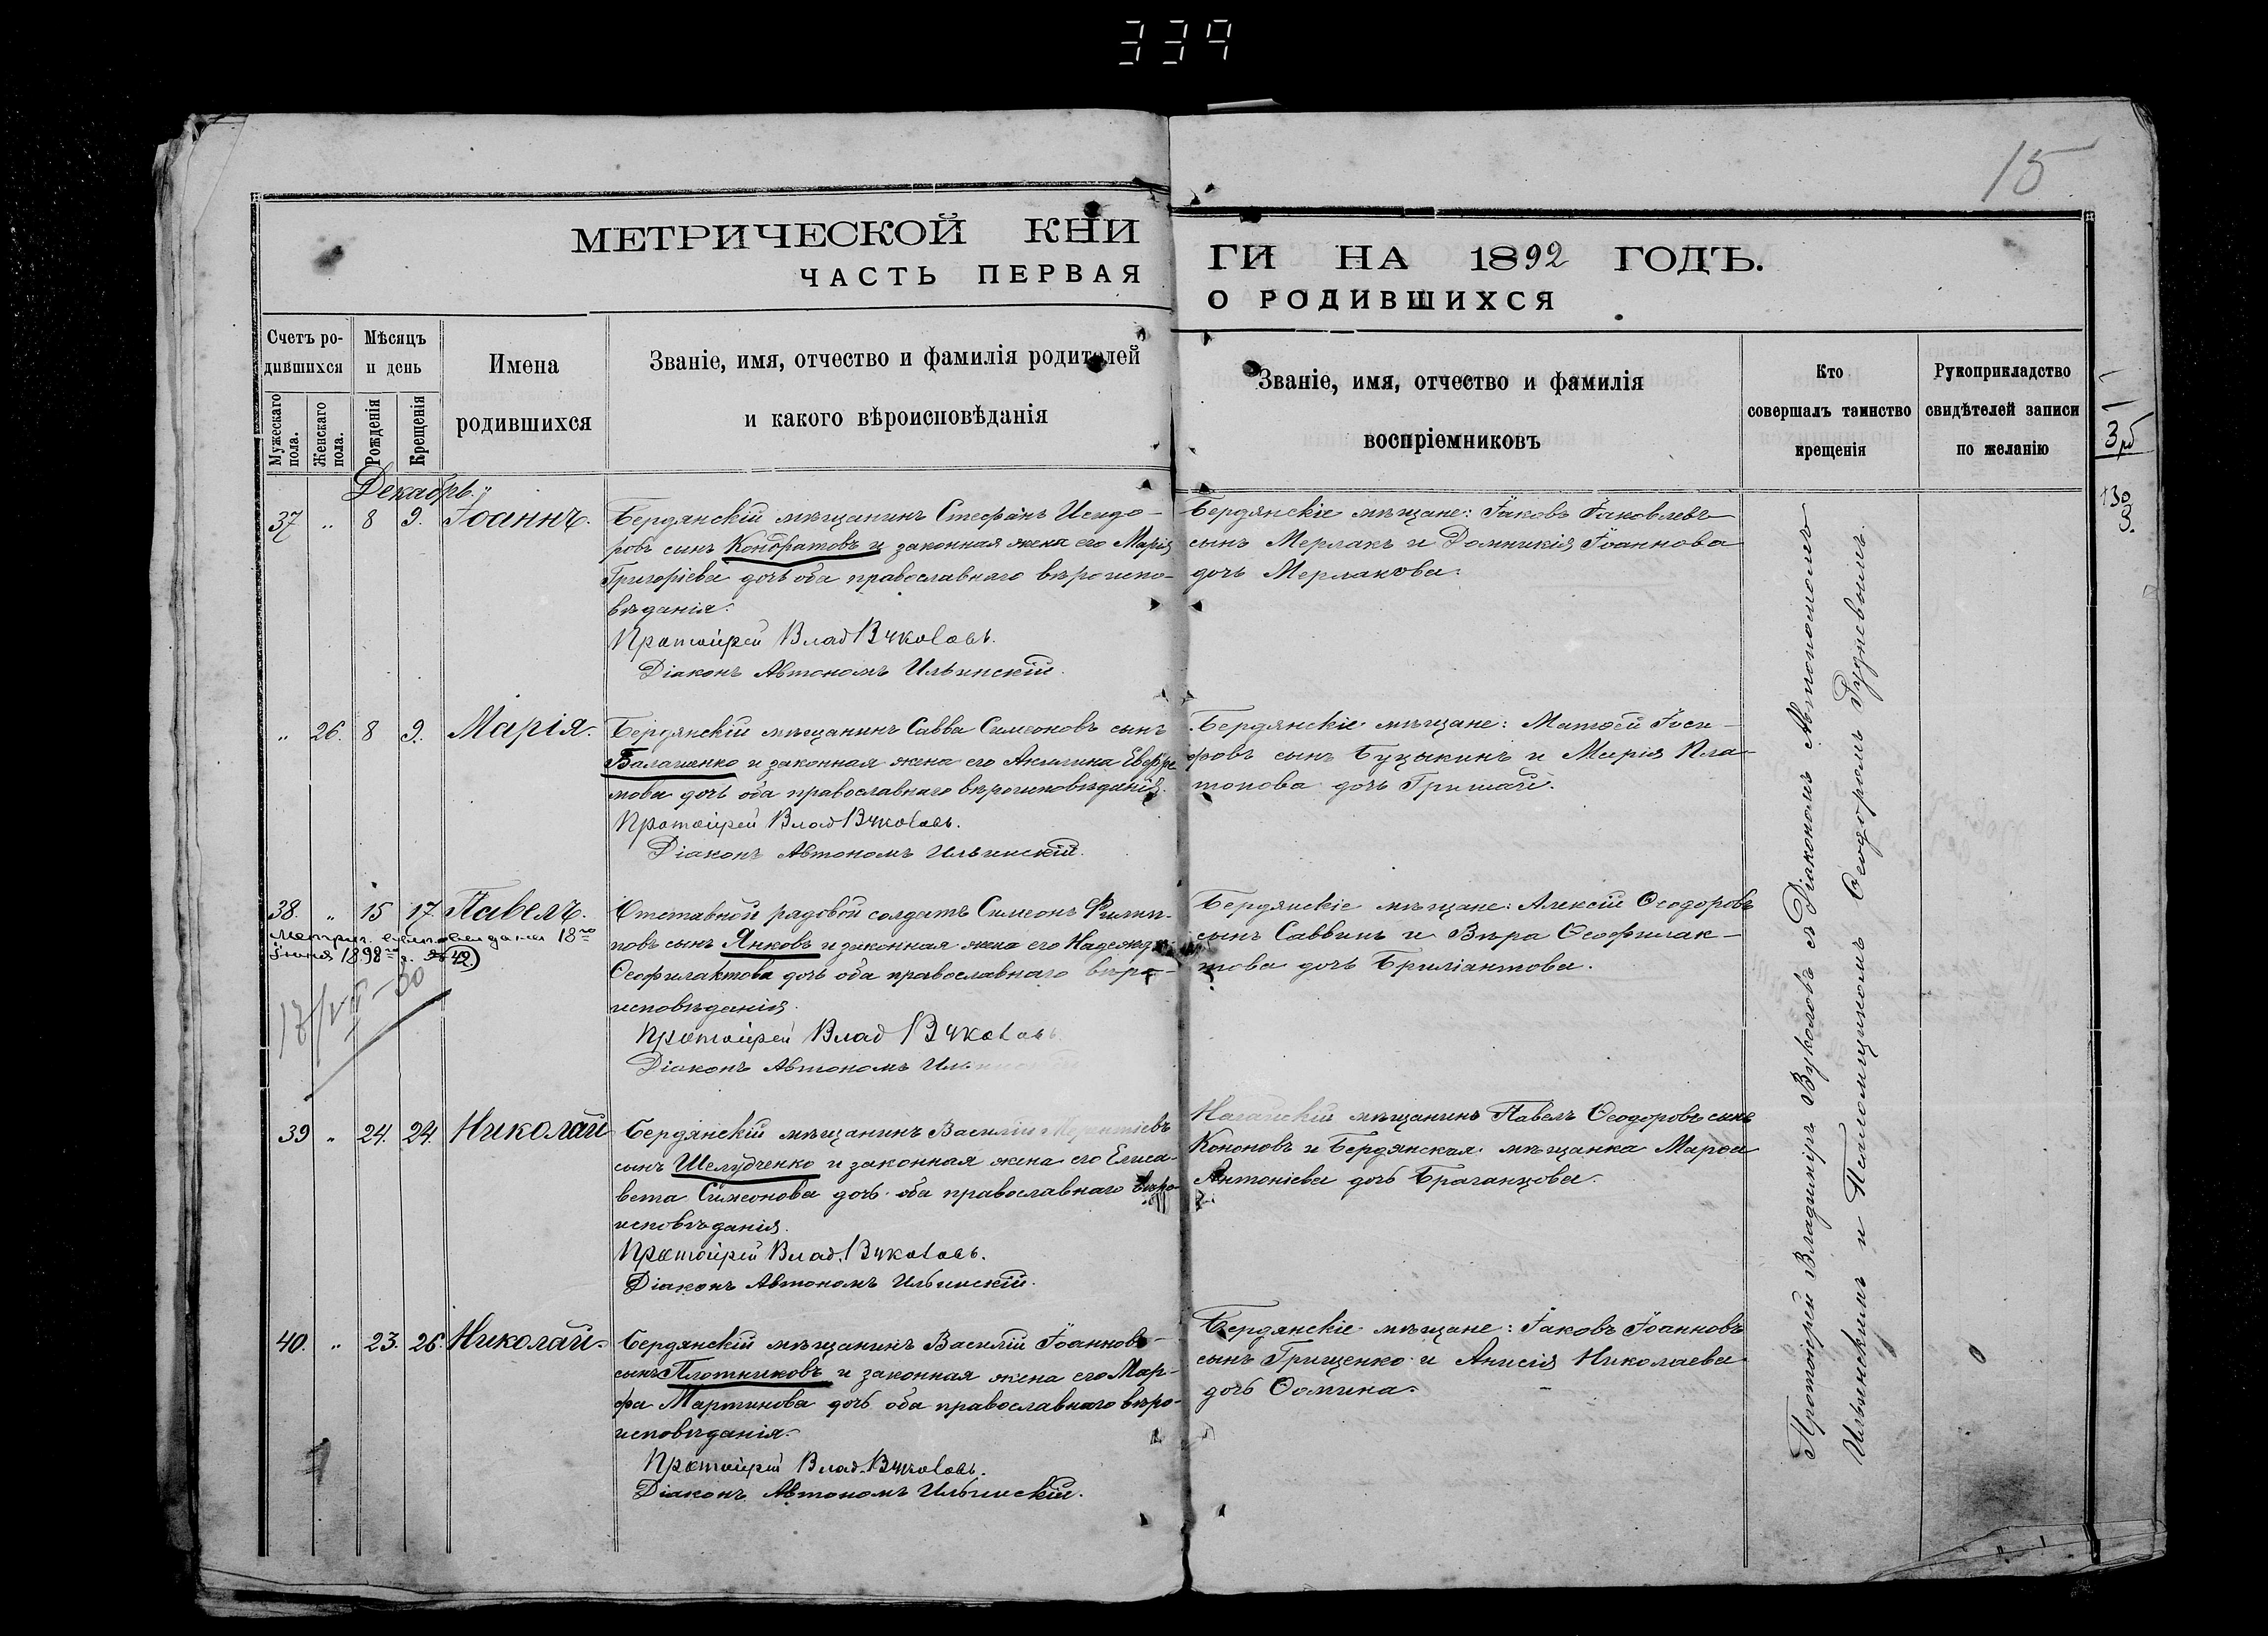 339
15
МЕТРИЧЕСКОЙ КНИ
ГИ НА 1892 ГОДЪ.
ЧАСТЬ ПЕРВАЯ
О РОДИВШИХСЯ
Счетъ ро-
дившихся
Мужескаго
пола.
Женскаго
пола.
Мѣсяцъ
и день
Рожденія
Крещенія
Имена
родившихся
Званіе, имя, отчество и фамилія родителей
и какого вѣроисповѣданія
Званіе, имя, отчество и фамилія
воспріемниковъ
Кто
совершалъ таинство
крещенія
Рукоприкладство
свидѣтелей записи
по желанію
Декабрь.
37 " 8 9. Іоаннъ.
Бердянскій мѣщанинъ Стефанъ Исидо-
ровъ сынъ Кондратовъ и законная жена его Марія
Григоріева дочь оба православнаго вѣроиспо-
вѣданія.
Протоіерей Влад Вуколовъ.
Діаконъ Автономъ Ильинскій.
Бердянскіе мѣщане: Іаковъ Іаковлевъ
сынъ Мерлакъ и Домникія Іоаннова
дочь Мерлакова.
" 26. 8 9. Марія.
Бердянскій мѣщанинъ Савва Симеоновъ сынъ
Балашенко и законная жена его Акилина Евфре
мова дочь оба православнаго вѣроисповѣданія.
Протоіерей Влад Вуколовъ.
Діаконъ Автономъ Ильинскій.
Бердянскіе мѣщане: Матѳей Іоси-
фовъ сынъ Буцыкинъ и Марія Пла-
тонова дочь Гришай.
38. " 15 17. Павелъ.
Метрич. выпись выдана 18го
Іюня 1898го г. № 42.
17/VI-30
Отставной рядовой солдатъ Симеонъ Филип-
повъ сынъ Янковъ и законная жена его Надежда
Ѳеофилактова дочь оба православнаго вѣро-
исповѣданія.
Протоіерей Влад Вуколовъ
Діаконъ Автономъ Ильинскій
Бердянскіе мѣщане: Алексій Ѳеодоровъ
сынъ Саввинъ и Вѣра Ѳеофилак-
това дочь Бриліантова.
39 " 24. 24. Николай
Бердянскій мѣщанинъ Василій
сынъ Шелудченко и законная жена его Елиса-
вета Симеонова дочь оба православнаго вѣро-
исповѣданія.
Протоіерей Влад. Вуколовъ.
Діаконъ Автономъ Ильинскій.
Ногайскій мѣщанинъ Павелъ Ѳеодоровъ сынъ
Кононовъ и Бердянская мѣщанка Марѳа
Антоніева дочь Браганцова.
40. " 23. 26. Николай.
Бердянскій мѣщанинъ Василій Іоанновъ
сынъ Плотниковъ и законная жена его Мар-
фа Мартинова дочь оба православнаго вѣро-
исповѣданія.
Протоіерей Влад. Вуколовъ.
Діаконъ Автономъ Ильинскій.
Бердянскіе мѣщане: Іаковъ Іоанновъ
сынъ Грищенко и Анисія Николаева
дочь Ѳомина.
Протоіерей Владиміръ Вуколовъ съ Діакономъ Автономомъ
Ильинскимъ и Псаломщикомъ Ѳеодоромъ Рудневымъ.
130
3.